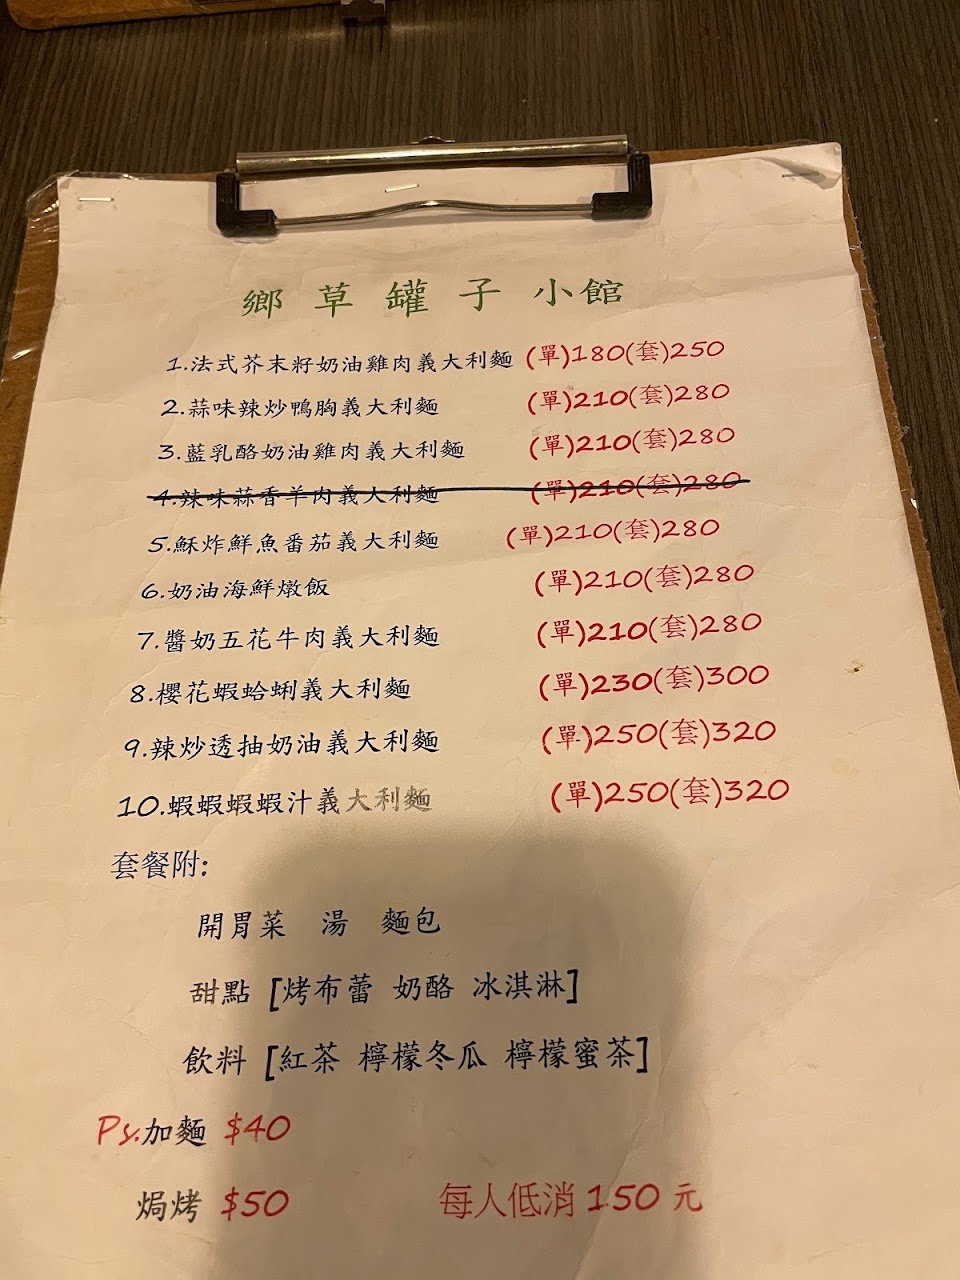 鄉 草 罐 子 小館
1.法式芥末籽奶油雞肉義大利麵 (單)180(套)250
2.蒜味辣炒鴨胸義大利麵 (單)210(套)280
3.藍乳酪奶油雞肉義大利麵 (單)210(套)280
4.辣味蒜香羊肉義大利麵 (單)210(套)280
5.酥炸鮮魚番茄義大利麵 (單)210(套)280
6.奶油海鮮燉飯 (單)210(套)280
7.醬奶五花牛肉義大利麵 (單)210(套)280
8.櫻花蝦蛤蜊義大利麵 (單)230(套)300
9.辣炒透抽奶油義大利麵 (單)250(套)320
10.蝦蝦蝦蝦汁義大利麵 (單)250(套)320
套餐附:
開胃菜 湯 麵包
甜點 [烤布蕾 奶酪 冰淇淋]
飲料 [紅茶 檸檬冬瓜 檸檬蜜茶]
Ps.加麵 $40
焗烤 $50 每人低消150元